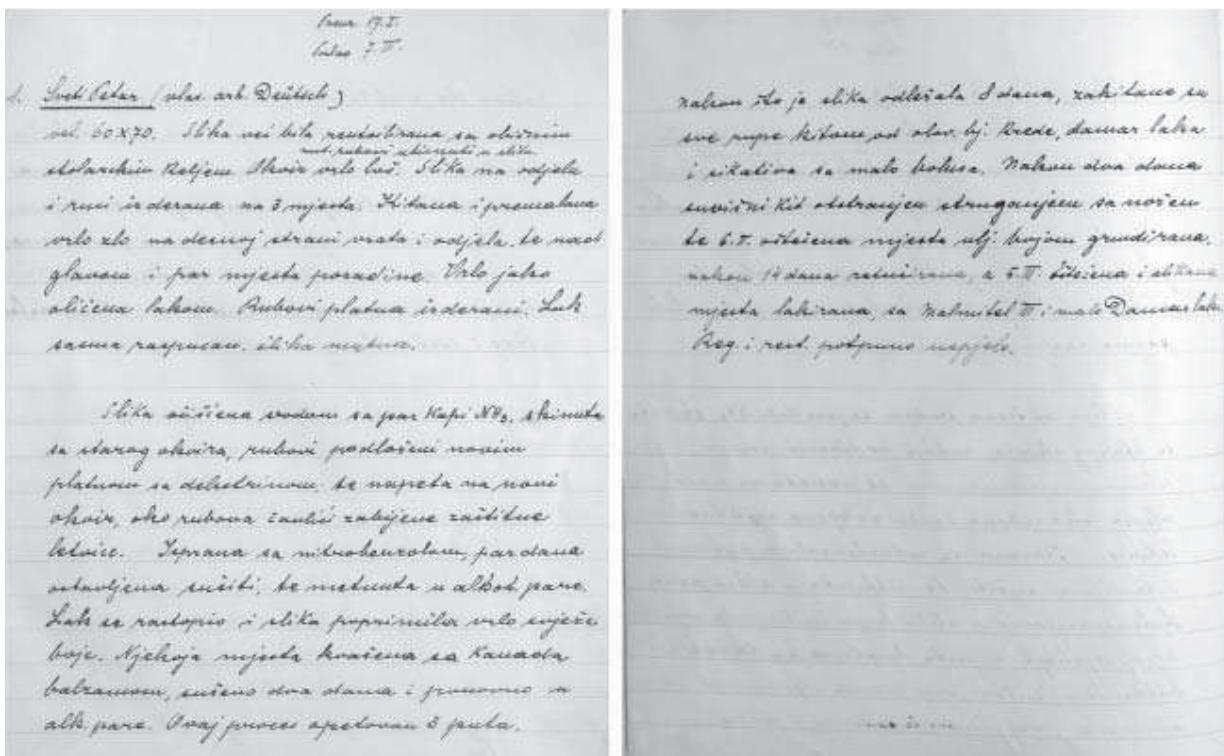 Preuz. 17. I.
Predao 7. II.
1. Sveti Petar (vlas. arh. Deütsch)
vel. 60x70. Slika već bila restorirana sa običnim
rubovi utisnuti u sliku
stolarskim keljem. Okvir vrlo loš. Slika na odjelu
i ruci izderana na 3 mjesta. Kitana i premalana
vrlo zlo na desnoj strani vrata i odjela, te nad
glavom i par mjesta pozadine. Vrlo jako
oličena lakom. Rubovi platna izderani. Lak
sasma raspucan. slika mutna.
Slika očišćena vodom sa par kapi NH3, skinuta
sa starog okvira, rubovi podloženi novim
platnom sa dekstrinom, te napeta na novi
okvir, oko rubova čavlići zabijene zaštitne
letvice. Isprana sa nitrobenzolom, par dana
ostavljena sušiti, te metnuta u alkoh. pare.
Lak se rastopio i slika poprimila vrlo svježe
boje. Njekoja mjesta kvašena sa Kanada
balzamom, sušeno dva dana i ponovno u
alk. pare. Ovaj proces opetovan 3 puta.
Nakon što je slika odležala 8 dana, zakitane su
sve rupe kitom, od olov. bj. Krede, damar laka
i sikativa sa malo bolusa. Nakon dva dana
suvišni kit otstranjen struganjem sa nožem
te 6. I. oštećena mjesta ulj. bojom grundirana,
nakon 14 dana retuširana, a 5. II. čišćena i slikana
mjesta lakirana, sa Malmittel II i malo Damar laka
Reg. i rest. potpuno uspjelo.